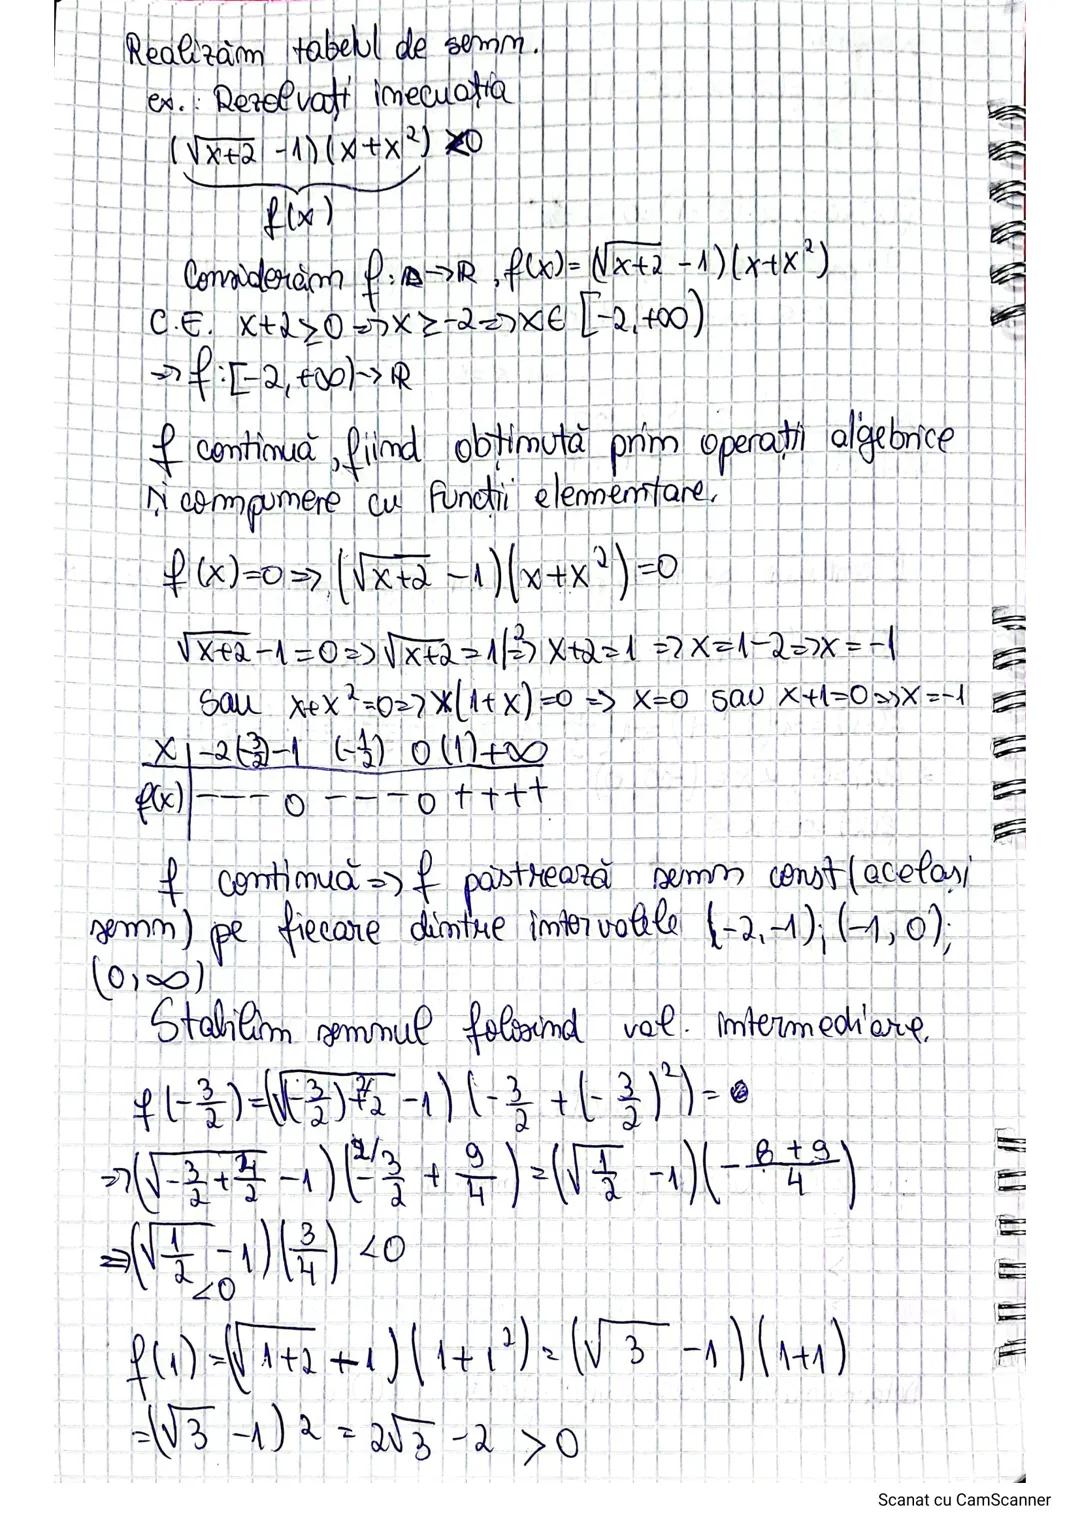 Realizăm tabelul de semn.
ex.: Rezolvați inecuația
(√x+2 -1)(x+x²) 0
f(x)
Considerăm f: D→R, f(x)=(√x+2 -1)(x+x²)
C.E. x+2≥0 => x≥-2 => x∈ [-2,+∞)
=> f:[-2,+∞)→R
f continuă, fiind obținută prin operații algebrice
și compunere cu funcții elementare.
f(x)=0 => (√x+2 -1)(x+x²)=0
√x+2 -1=0 => √x+2=1|² => x+2=1 => x=1-2 => x=-1
sau x+x²=0 => x(1+x)=0 => x=0 sau x+1=0 => x=-1
x | -2 (-3/2) -1 (-1/2) 0 (1) +∞
f(x) | - - - 0 - - - 0 + + + +
f continuă => f păstrează semn const (același
semn) pe fiecare dintre intervalele (-2,-1); (-1,0);
(0,∞)
Stabilim semnul folosind val. intermediare.
f(-3/2)=(√(-3/2)+2 -1)(-3/2+(-3/2)²)=
=>(√-3/2+4/2 -1)(2/-3/2+9/4)=(√1/2 -1)(-6+9/4)
=>(√1/2 -1)(3/4) <0
<0
f(1)=(√1+2 +1)(1+1²)=(√3 -1)(1+1)
=(√3 -1)2 = 2√3 -2 >0
Scanat cu CamScanner